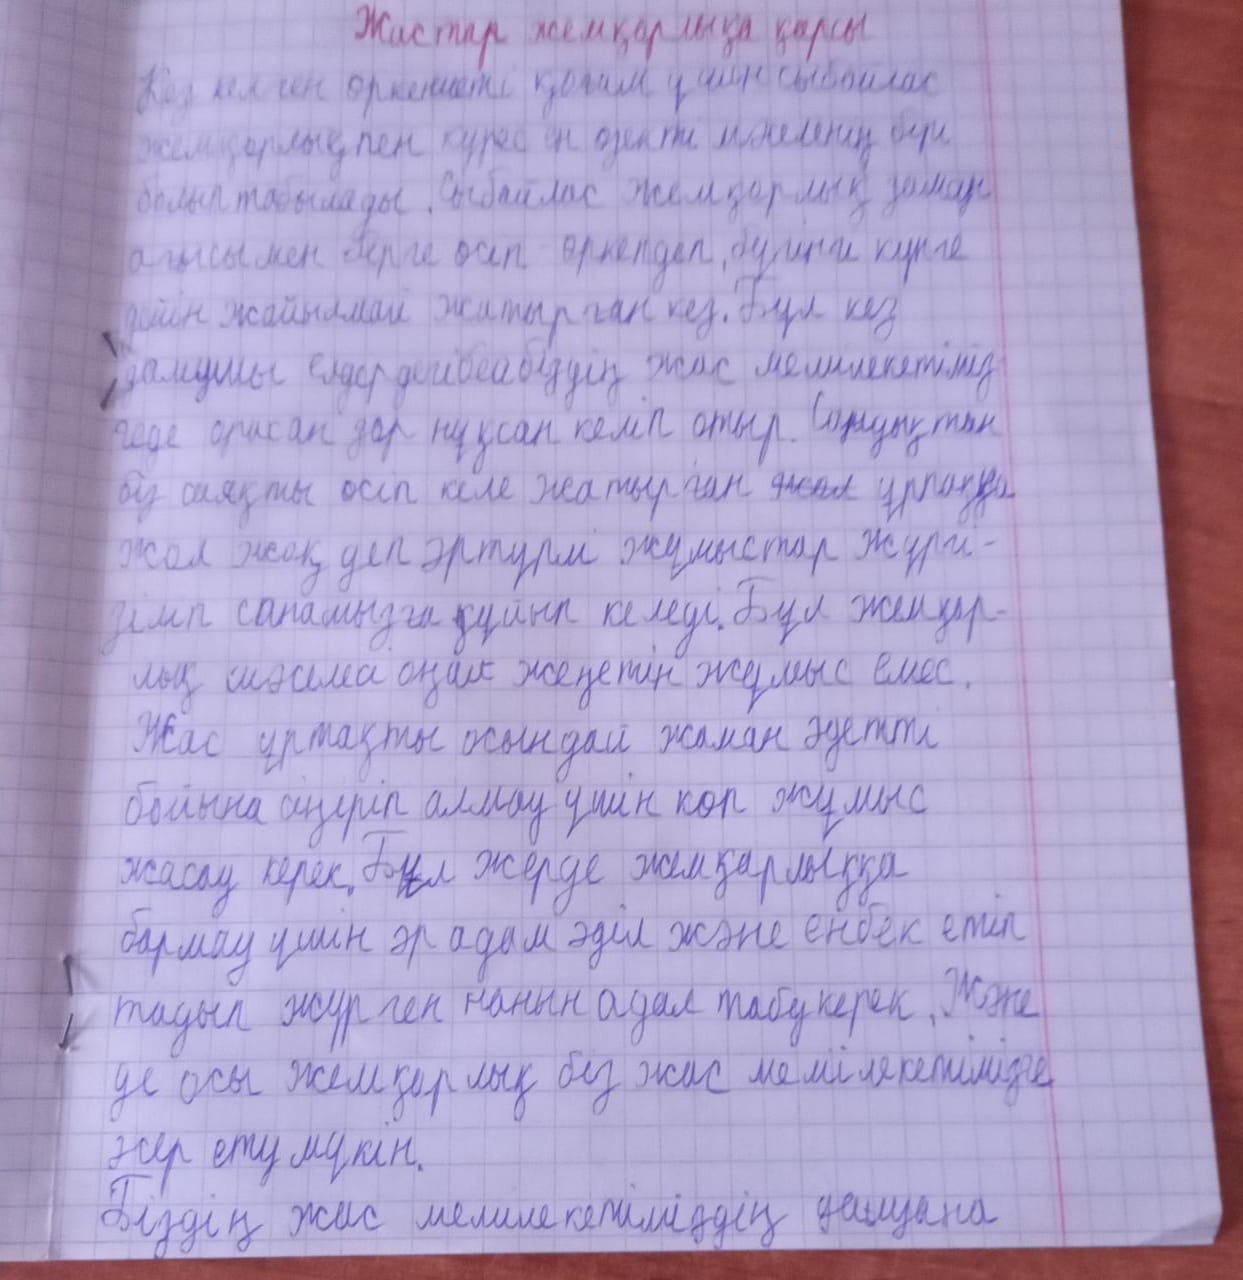 Жастар жемқорлыққа қарсы
Кез келген өркениетті қоғам үшін сыбайлас
жемқорлықпен күрес ең өзекті мәселенің бірі
болып табылады. Сыбайлас жемқорлық заман
ағысымен бірге өсіп-өркендеп, бүгінгі күнге
дейін жайылмай жатырған кез. Бұл кез
дамушы елдер біздің жас мемлекетіміз
геде орасан зор нұқсан келіп отыр. Сондықтан
біз сияқты өсіп келе жатырған ұрпаққа
жол жоқ деп әртүрлі жұмыстар жүргі-
зіліп санамызға құйып келеді. Бұл жемқор-
лық оңай жеңетін жұмыс емес.
Жас ұрпақты осындай жаман әдетті
бойына сіңіріп алмау үшін көп жұмыс
жасау керек. Бұл жерде жемқарлыққа
бармау үшін әр адам әділ және еңбек етіп
тадып жүрген нанын адал табу керек. Және
де осы жемқорлық біз жас мемілекетімізге
әсер ету мүкін.
Біздің жас мемлекетіміздің дамуана